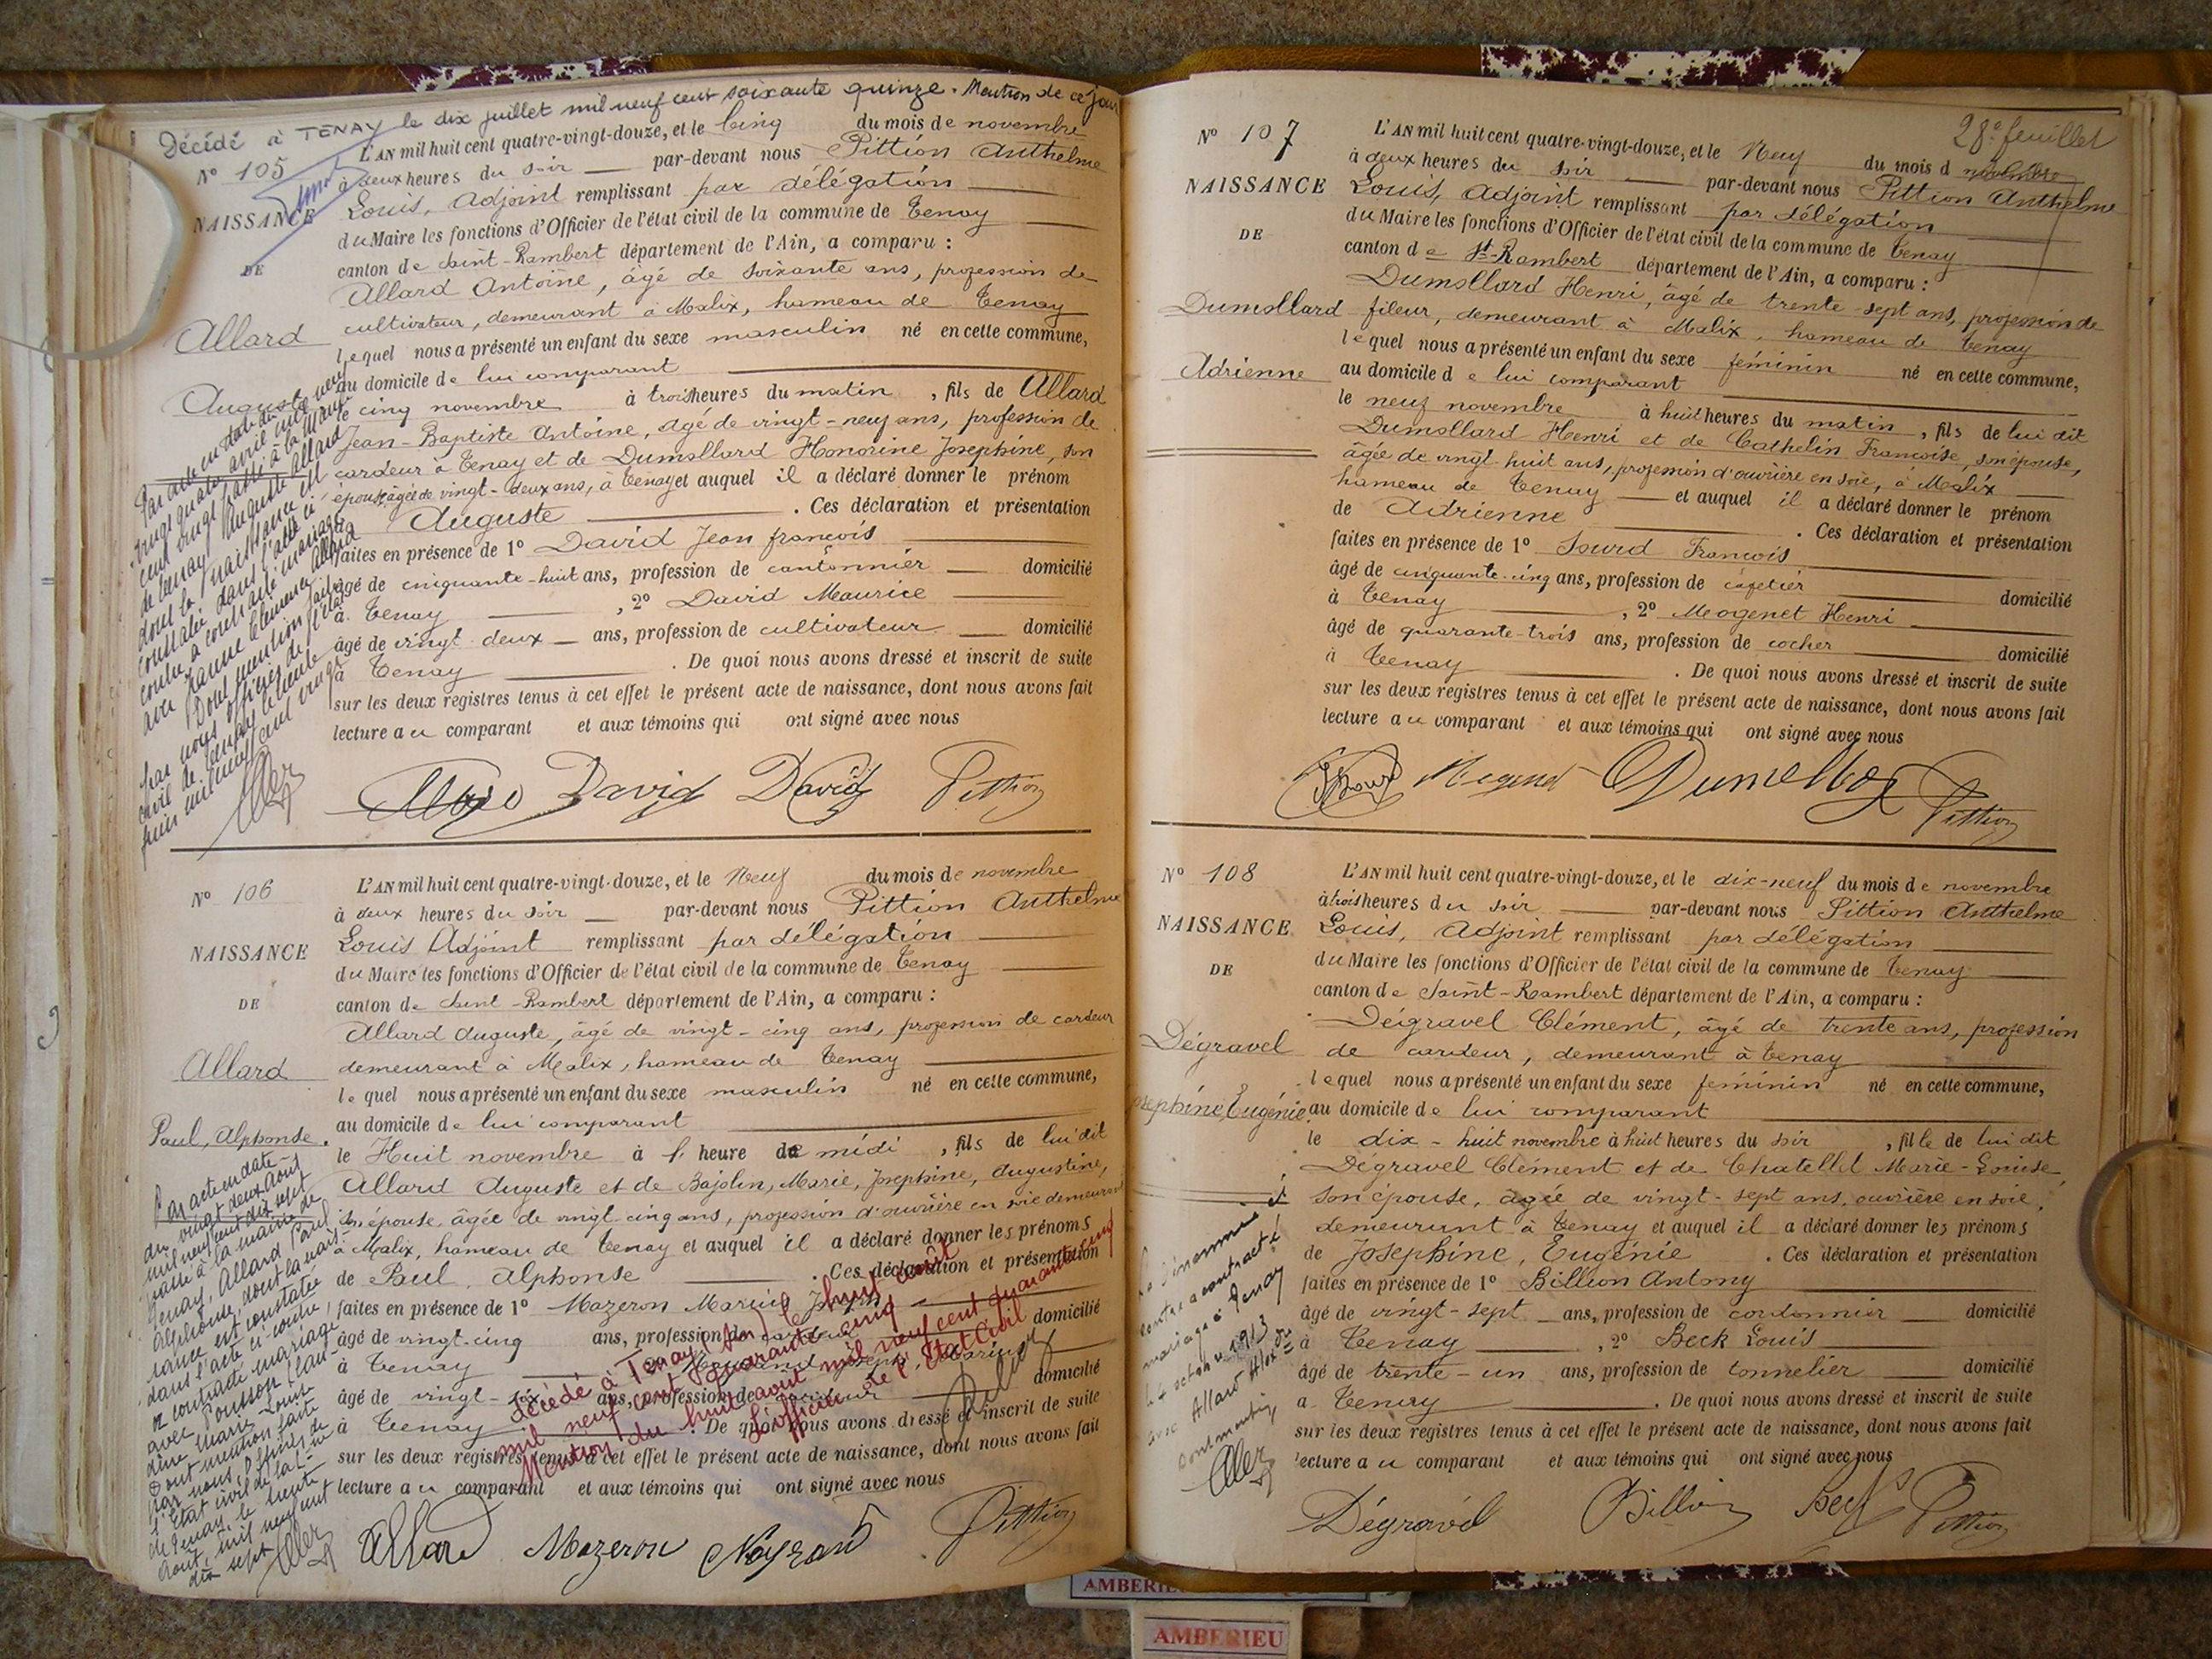 Décédé à TENAY le dix juillet mil neuf cent soixante quinze. Mention de ce jour
N° 105
NAISSANCE
DE
Allard
Auguste
L'AN mil huit cent quatre-vingt-douze, et le Cinq du mois de novembre
à deux heures du soir par-devant nous Pittion Anthelme
Louis, Adjoint remplissant par délégation
du Maire les fonctions d'Officier de l'état civil de la commune de Tenay
canton de Saint-Rambert département de l'Ain, a comparu :
Allard Antoine, âgé de soixante ans, profession de
cultivateur, demeurant à Malix, hameau de Tenay
lequel nous a présenté un enfant du sexe masculin né en cette commune,
au domicile de lui comparant
le cinq novembre à trois heures du matin, fils de Allard
Jean-Baptiste Antoine, âgé de vingt-neuf ans, profession de
cardeur à Tenay et de Dumollard Honorine Josephine, son
épouse, âgée de vingt-deux ans, à Tenay et auquel il a déclaré donner le prénom
Auguste . Ces déclaration et présentation
faites en présence de 1° David Jean françois
âgé de cinquante-huit ans, profession de cantonnier domicilié
à Tenay , 2° David Maurice
âgé de vingt deux ans, profession de cultivateur domicilié
à Tenay . De quoi nous avons dressé et inscrit de suite
sur les deux registres tenus à cet effet le présent acte de naissance, dont nous avons fait
lecture au comparant et aux témoins qui ont signé avec nous
Par acte en date du
vingt quatre avril mil neuf
cent vingt passé à la Mairie
de Tenay Auguste Allard
dont la naissance est
constatée dans l'acte ci
contre, a contracté mariage
avec Jeanne Clémence Allard
Dont mention faite
par nous officier de l'état
civil de Tenay le trente
juin mil neuf cent vingt
David David Pittion
N° 106
NAISSANCE
DE
Allard
Paul, Alphonse.
L'AN mil huit cent quatre-vingt-douze, et le Neuf du mois de novembre
à deux heures du soir par-devant nous Pittion Anthelme
Louis Adjoint remplissant par délégation
du Maire les fonctions d'Officier de l'état civil de la commune de Tenay
canton de Saint-Rambert département de l'Ain, a comparu :
Allard Auguste, âgé de vingt-cinq ans, profession de cardeur
demeurant à Malix, hameau de Tenay
lequel nous a présenté un enfant du sexe masculin né en cette commune,
au domicile de lui comparant
le Huit novembre à l' heure de midi, fils de lui dit
Allard Auguste et de Bajolin, Marie, Josephine, Augustine,
son épouse, âgée de vingt-cinq ans, profession d'ouvrière en soie demeurant
à Malix, hameau de Tenay et auquel il a déclaré donner les prénoms
de Paul, Alphonse . Ces déclaration et présentation
faites en présence de 1° Mazeron Marius Joseph
âgé de vingt-cinq ans, profession de cardeur domicilié
à Tenay
âgé de vingt-six ans, profession de cardeur domicilié
à Tenay . De quoi nous avons dressé et inscrit de suite
sur les deux registres tenus à cet effet le présent acte de naissance, dont nous avons fait
lecture au comparant et aux témoins qui ont signé avec nous
décédé à Tenay (Ain) le huit août
mil neuf cent quarante cinq
Mention du huit août mil neuf cent quarante cinq
L'officier de l'Etat Civil
Par acte en date
du vingt deux Août
mil neuf cent dix sept
passé à la mairie de
Tenay, Allard Paul
Alphonse, dont la nais-
sance est constatée
dans l'acte ci-contre,
a contracté mariage
avec Pousson Clau-
dine Marie Louise
Dont mention faite
par nous, officier de
l'Etat civil de la Cne
de Tenay, le trente
Août mil neuf cent
dix sept
Allard Mazeron Neyrand Pittion
28e feuillet
N° 107
NAISSANCE
DE
Dumollard
Adrienne
L'AN mil huit cent quatre-vingt-douze, et le Neuf du mois d novembre
à deux heures du soir par-devant nous Pittion Anthelme
Louis, Adjoint remplissant par délégation
du Maire les fonctions d'Officier de l'état civil de la commune de Tenay
canton de St-Rambert département de l'Ain, a comparu :
Dumollard Henri, âgé de trente-sept ans, profession de
fileur, demeurant à Malix, hameau de Tenay
lequel nous a présenté un enfant du sexe féminin né en cette commune,
au domicile de lui comparant
le neuf novembre à huit heures du matin, fils de lui dit
Dumollard Henri et de Cathelin Françoise, son épouse,
âgée de vingt-huit ans, profession d'ouvrière en soie, à Malix
hameau de Tenay et auquel il a déclaré donner le prénom
de Adrienne . Ces déclaration et présentation
faites en présence de 1° Sourd François
âgé de cinquante-cinq ans, profession de cafetier domicilié
à Tenay , 2° Mogenet Henri
âgé de quarante-trois ans, profession de cocher domicilié
à Tenay . De quoi nous avons dressé et inscrit de suite
sur les deux registres tenus à cet effet le présent acte de naissance, dont nous avons fait
lecture au comparant et aux témoins qui ont signé avec nous
Dumollard Pittion
N° 108
NAISSANCE
DE
Dégravel
Josephine, Eugénie
L'AN mil huit cent quatre-vingt-douze, et le dix-neuf du mois de novembre
à trois heures du soir par-devant nous Pittion Anthelme
Louis, Adjoint remplissant par délégation
du Maire les fonctions d'Officier de l'état civil de la commune de Tenay
canton de Saint-Rambert département de l'Ain, a comparu :
Dégravel Clément, âgé de trente ans, profession
de cardeur, demeurant à Tenay
lequel nous a présenté un enfant du sexe féminin né en cette commune,
au domicile de lui comparant
le dix-huit novembre à huit heures du soir, fille de lui dit
Dégravel Clément et de Chatellet Marie-Louise
son épouse, âgée de vingt-sept ans, ouvrière en soie,
demeurant à Tenay et auquel il a déclaré donner les prénoms
de Josephine, Eugénie . Ces déclaration et présentation
faites en présence de 1° Billion Antony
âgé de vingt-sept ans, profession de cordonnier domicilié
à Tenay , 2° Beck Louis
âgé de trente-un ans, profession de tonnelier domicilié
à Tenay . De quoi nous avons dressé et inscrit de suite
sur les deux registres tenus à cet effet le présent acte de naissance, dont nous avons fait
lecture au comparant et aux témoins qui ont signé avec nous
La dénommée ci
contre a contracté
mariage à Tenay
le 4 octobre 1913
avec Allard
Dont mention
Dégravel Billion Beck Pittion
AMBERIEU
AMBERIEU